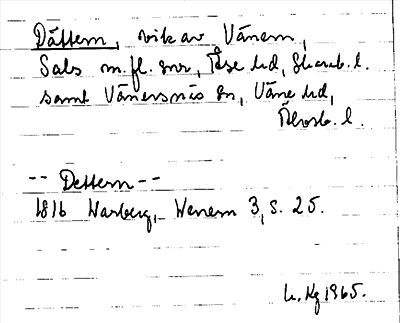 Dättern, vik av Vänern,
Sals m.fl. snr, Åse hd, Skarab. l.
samt Vänersnäs sn, Väne hd,
Älvsb. l.
-- Dettern --
1816 Warberg, Wenern 3, s. 25.
1965.